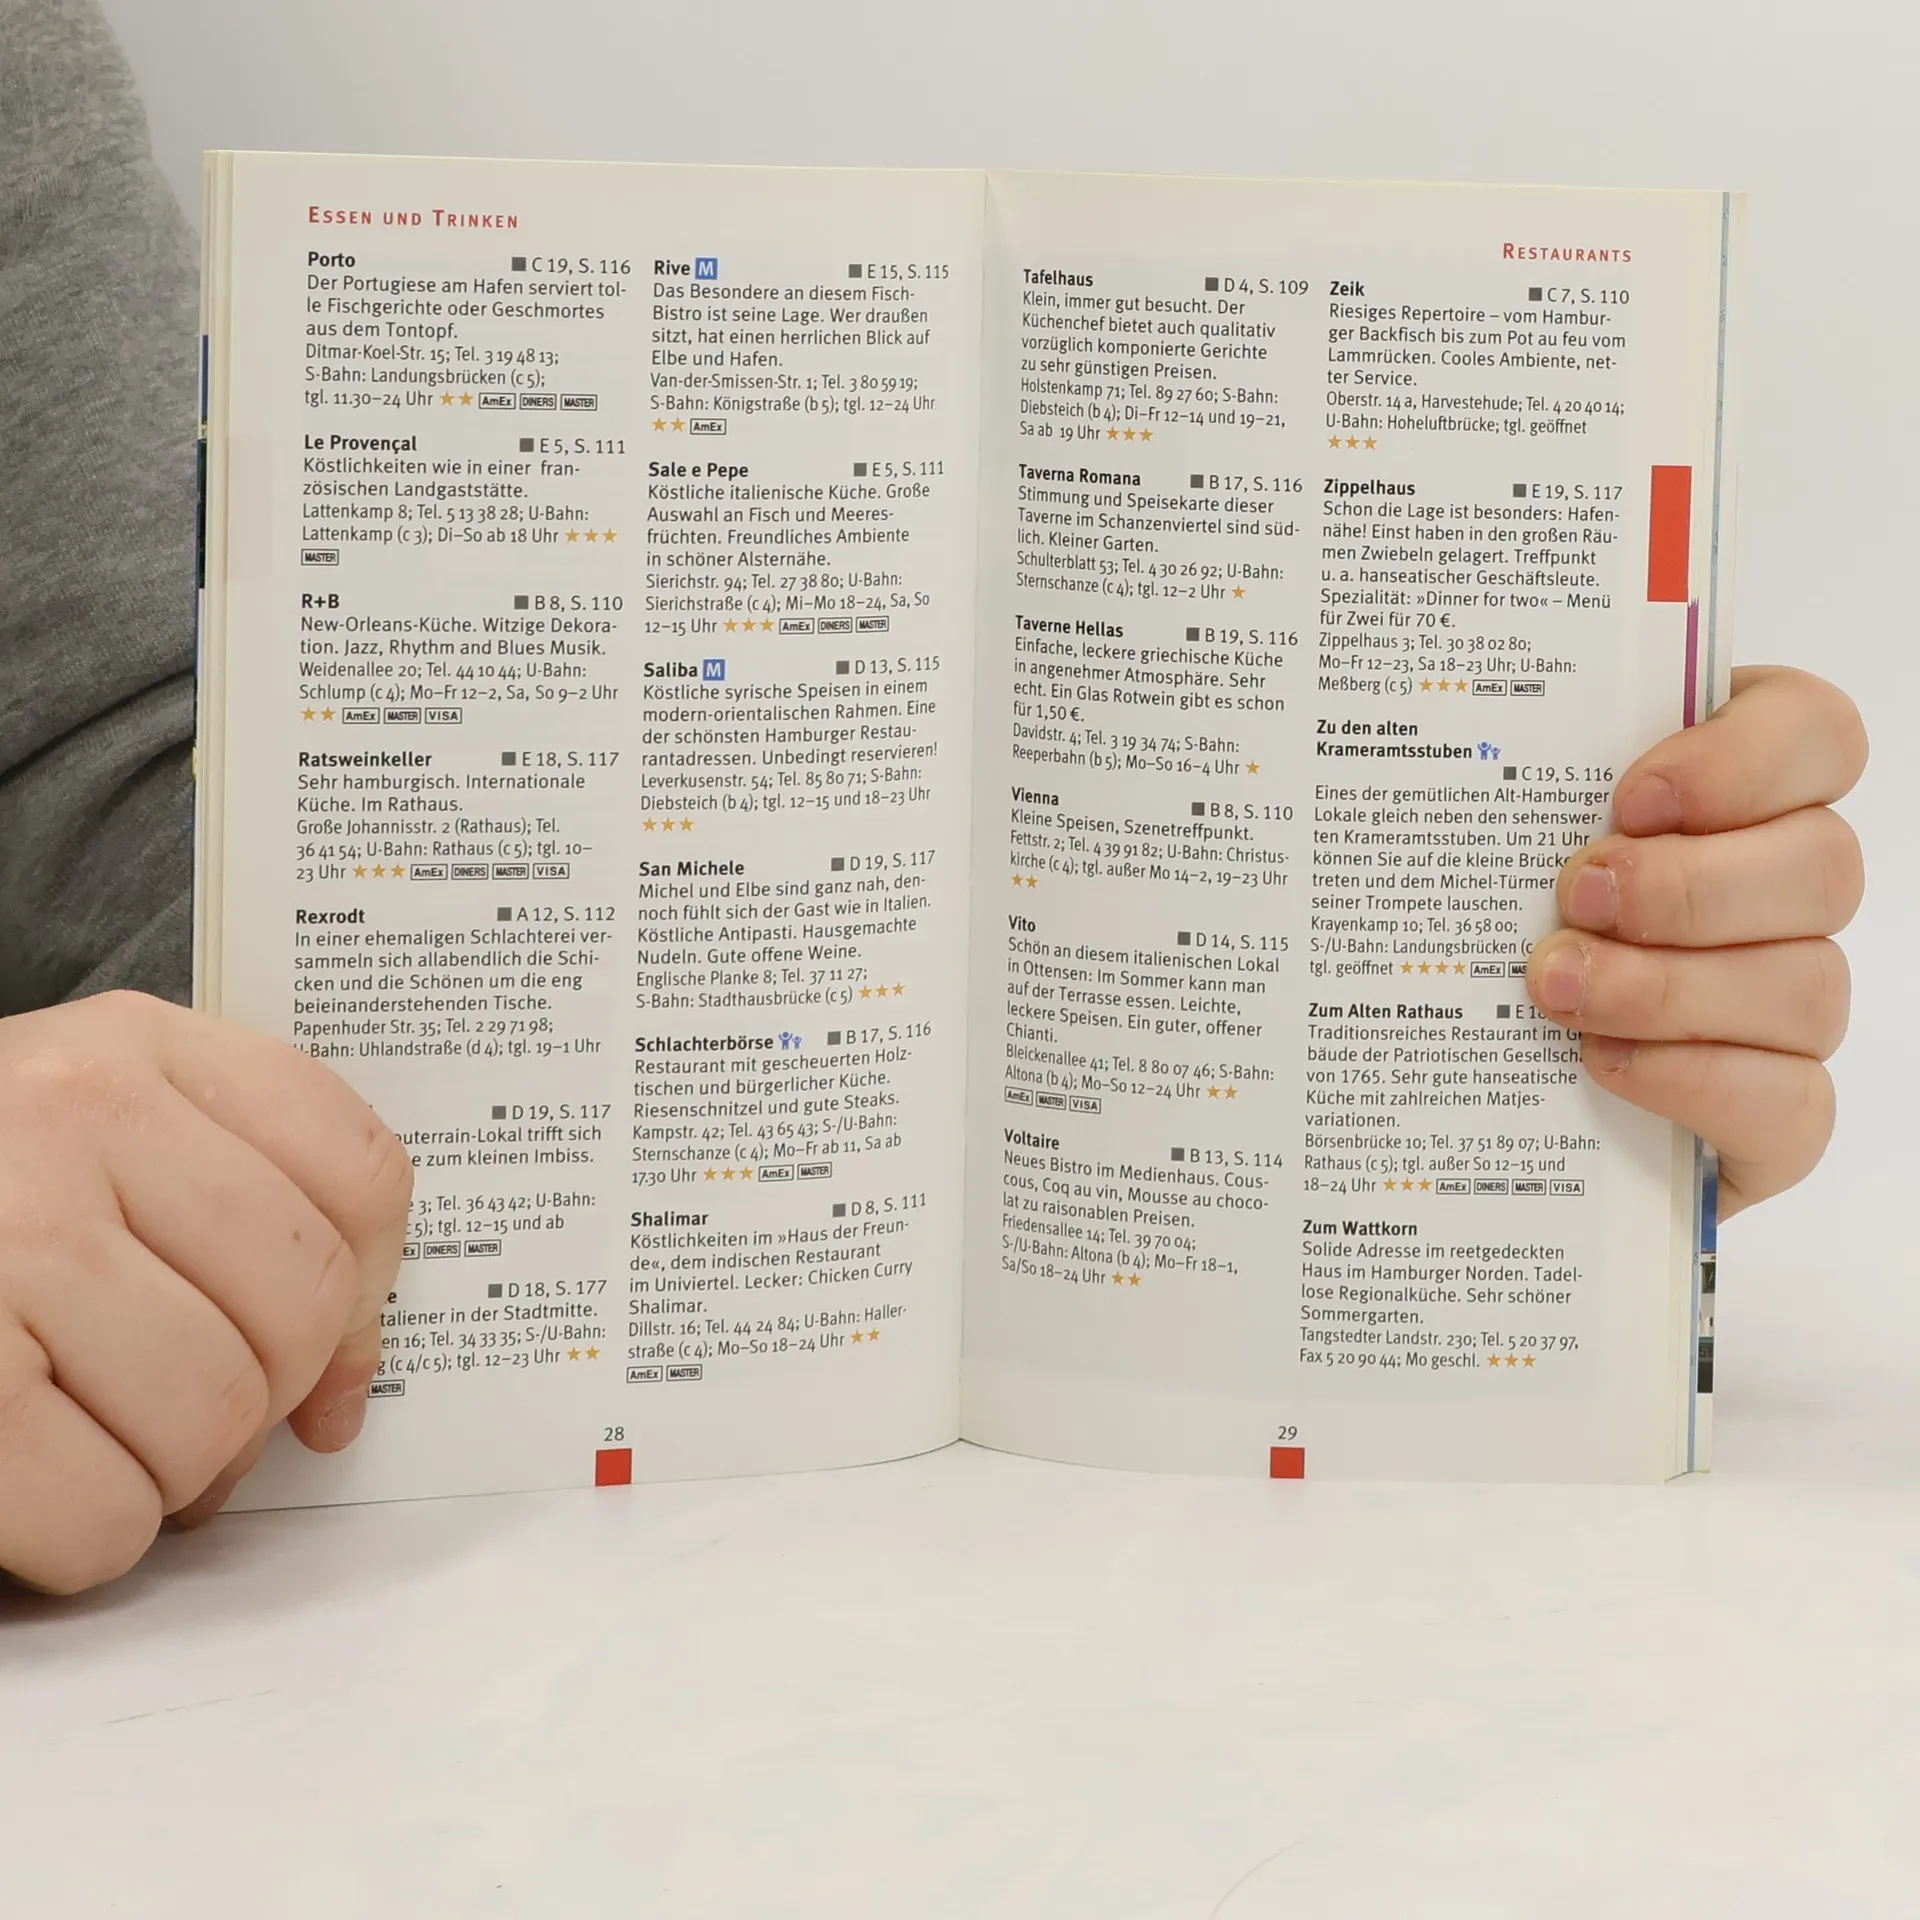 ESSEN UND TRINKEN
Porto ■ C 19, S. 116
Der Portugiese am Hafen serviert tol-
le Fischgerichte oder Geschmortes
aus dem Tontopf.
Ditmar-Koel-Str. 15; Tel. 3 19 48 13;
S-Bahn: Landungsbrücken (c 5);
tgl. 11.30–24 Uhr ★★ AmEx DINERS MASTER
Le Provençal ■ E 5, S. 111
Köstlichkeiten wie in einer fran-
zösischen Landgaststätte.
Lattenkamp 8; Tel. 5 13 38 28; U-Bahn:
Lattenkamp (c 3); Di–So ab 18 Uhr ★★★
MASTER
R+B ■ B 8, S. 110
New-Orleans-Küche. Witzige Dekora-
tion. Jazz, Rhythm and Blues Musik.
Weidenallee 20; Tel. 44 10 44; U-Bahn:
Schlump (c 4); Mo–Fr 12–2, Sa, So 9–2 Uhr
★★ AmEx MASTER VISA
Ratsweinkeller ■ E 18, S. 117
Sehr hamburgisch. Internationale
Küche. Im Rathaus.
Große Johannisstr. 2 (Rathaus); Tel.
36 41 54; U-Bahn: Rathaus (c 5); tgl. 10–
23 Uhr ★★★ AmEx DINERS MASTER VISA
Rexrodt ■ A 12, S. 112
In einer ehemaligen Schlachterei ver-
sammeln sich allabendlich die Schi-
cken und die Schönen um die eng
beieinanderstehenden Tische.
Papenhuder Str. 35; Tel. 2 29 71 98;
-Bahn: Uhlandstraße (d 4); tgl. 19–1 Uhr
■ D 19, S. 117
outerrain-Lokal trifft sich
e zum kleinen Imbiss.
3; Tel. 36 43 42; U-Bahn:
c 5); tgl. 12–15 und ab
Ex DINERS MASTER
e ■ D 18, S. 177
taliener in der Stadtmitte.
en 16; Tel. 34 33 35; S-/U-Bahn:
g (c 4/c 5); tgl. 12–23 Uhr ★★
MASTER
Rive M ■ E 15, S. 115
Das Besondere an diesem Fisch-
Bistro ist seine Lage. Wer draußen
sitzt, hat einen herrlichen Blick auf
Elbe und Hafen.
Van-der-Smissen-Str. 1; Tel. 3 80 59 19;
S-Bahn: Königstraße (b 5); tgl. 12–24 Uhr
★★ AmEx
Sale e Pepe ■ E 5, S. 111
Köstliche italienische Küche. Große
Auswahl an Fisch und Meeres-
früchten. Freundliches Ambiente
in schöner Alsternähe.
Sierichstr. 94; Tel. 27 38 80; U-Bahn:
Sierichstraße (c 4); Mi–Mo 18–24, Sa, So
12–15 Uhr ★★★ AmEx DINERS MASTER
Saliba M ■ D 13, S. 115
Köstliche syrische Speisen in einem
modern-orientalischen Rahmen. Eine
der schönsten Hamburger Restau-
rantadressen. Unbedingt reservieren!
Leverkusenstr. 54; Tel. 85 80 71; S-Bahn:
Diebsteich (b 4); tgl. 12–15 und 18–23 Uhr
★★★
San Michele ■ D 19, S. 117
Michel und Elbe sind ganz nah, den-
noch fühlt sich der Gast wie in Italien.
Köstliche Antipasti. Hausgemachte
Nudeln. Gute offene Weine.
Englische Planke 8; Tel. 37 11 27;
S-Bahn: Stadthausbrücke (c 5) ★★★
Schlachterbörse ■ B 17, S. 116
Restaurant mit gescheuerten Holz-
tischen und bürgerlicher Küche.
Riesenschnitzel und gute Steaks.
Kampstr. 42; Tel. 43 65 43; S-/U-Bahn:
Sternschanze (c 4); Mo–Fr ab 11, Sa ab
17.30 Uhr ★★★ AmEx MASTER
Shalimar ■ D 8, S. 111
Köstlichkeiten im »Haus der Freun-
de«, dem indischen Restaurant
im Univiertel. Lecker: Chicken Curry
Shalimar.
Dillstr. 16; Tel. 44 24 84; U-Bahn: Haller-
straße (c 4); Mo–So 18–24 Uhr ★★
AmEx MASTER
28
RESTAURANTS
Tafelhaus ■ D 4, S. 109
Klein, immer gut besucht. Der
Küchenchef bietet auch qualitativ
vorzüglich komponierte Gerichte
zu sehr günstigen Preisen.
Holstenkamp 71; Tel. 89 27 60; S-Bahn:
Diebsteich (b 4); Di–Fr 12–14 und 19–21,
Sa ab 19 Uhr ★★★
Taverna Romana ■ B 17, S. 116
Stimmung und Speisekarte dieser
Taverne im Schanzenviertel sind süd-
lich. Kleiner Garten.
Schulterblatt 53; Tel. 4 30 26 92; U-Bahn:
Sternschanze (c 4); tgl. 12–2 Uhr ★
Taverne Hellas ■ B 19, S. 116
Einfache, leckere griechische Küche
in angenehmer Atmosphäre. Sehr
echt. Ein Glas Rotwein gibt es schon
für 1,50 €.
Davidstr. 4; Tel. 3 19 34 74; S-Bahn:
Reeperbahn (b 5); Mo–So 16–4 Uhr ★
Vienna ■ B 8, S. 110
Kleine Speisen, Szenetreffpunkt.
Fettstr. 2; Tel. 4 39 91 82; U-Bahn: Christus-
kirche (c 4); tgl. außer Mo 14–2, 19–23 Uhr
★★
Vito ■ D 14, S. 115
Schön an diesem italienischen Lokal
in Ottensen: Im Sommer kann man
auf der Terrasse essen. Leichte,
leckere Speisen. Ein guter, offener
Chianti.
Bleickenallee 41; Tel. 8 80 07 46; S-Bahn:
Altona (b 4); Mo–So 12–24 Uhr ★★
AmEx MASTER VISA
Voltaire ■ B 13, S. 114
Neues Bistro im Medienhaus. Cous-
cous, Coq au vin, Mousse au choco-
lat zu raisonablen Preisen.
Friedensallee 14; Tel. 39 70 04;
S-/U-Bahn: Altona (b 4); Mo–Fr 18–1,
Sa/So 18–24 Uhr ★★
Zeik ■ C 7, S. 110
Riesiges Repertoire – vom Hambur-
ger Backfisch bis zum Pot au feu vom
Lammrücken. Cooles Ambiente, net-
ter Service.
Oberstr. 14 a, Harvestehude; Tel. 4 20 40 14;
U-Bahn: Hoheluftbrücke; tgl. geöffnet
★★★
Zippelhaus ■ E 19, S. 117
Schon die Lage ist besonders: Hafen-
nähe! Einst haben in den großen Räu-
men Zwiebeln gelagert. Treffpunkt
u. a. hanseatischer Geschäftsleute.
Spezialität: »Dinner for two« – Menü
für Zwei für 70 €.
Zippelhaus 3; Tel. 30 38 02 80;
Mo–Fr 12–23, Sa 18–23 Uhr; U-Bahn:
Meßberg (c 5) ★★★ AmEx MASTER
Zu den alten
Krameramtsstuben
■ C 19, S. 116
Eines der gemütlichen Alt-Hamburger
Lokale gleich neben den sehenswer-
ten Krameramtsstuben. Um 21 Uhr
können Sie auf die kleine Brück
treten und dem Michel-Türmer
seiner Trompete lauschen.
Krayenkamp 10; Tel. 36 58 00;
S-/U-Bahn: Landungsbrücken (c
tgl. geöffnet ★★★★ AmEx MAS
Zum Alten Rathaus ■ E 18
Traditionsreiches Restaurant im Ge
bäude der Patriotischen Gesellsch
von 1765. Sehr gute hanseatische
Küche mit zahlreichen Matjes-
variationen.
Börsenbrücke 10; Tel. 37 51 89 07; U-Bahn:
Rathaus (c 5); tgl. außer So 12–15 und
18–24 Uhr ★★★ AmEx DINERS MASTER VISA
Zum Wattkorn
Solide Adresse im reetgedeckten
Haus im Hamburger Norden. Tadel-
lose Regionalküche. Sehr schöner
Sommergarten.
Tangstedter Landstr. 230; Tel. 5 20 37 97,
Fax 5 20 90 44; Mo geschl. ★★★
29